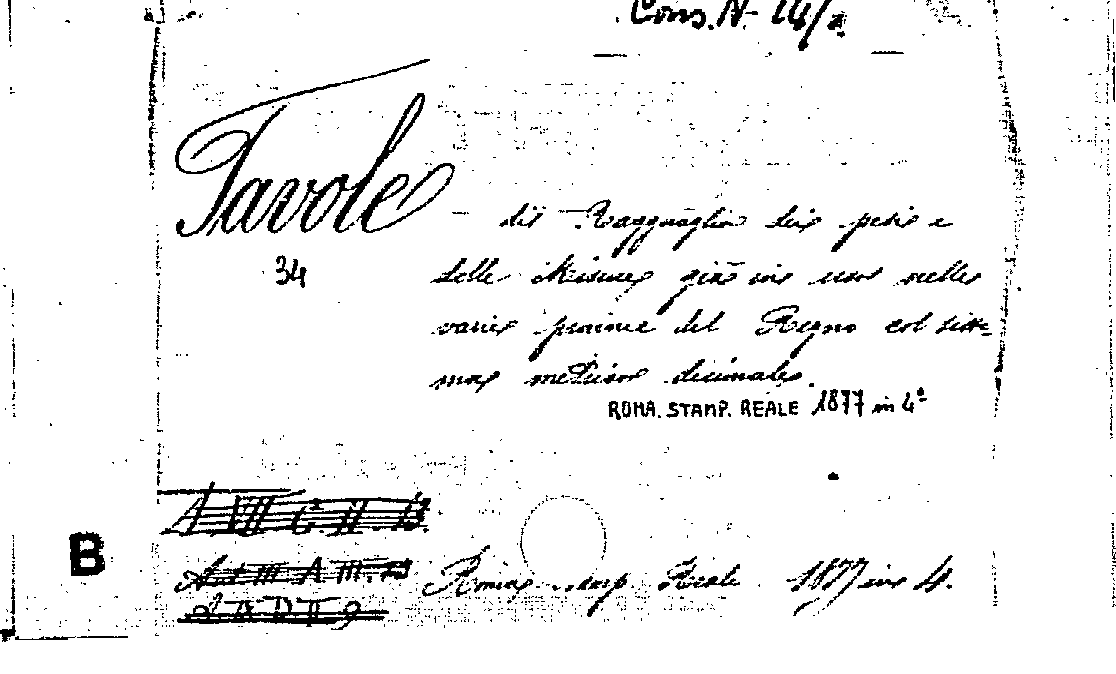 Cons. N. 14/2
Tavole di Ragguaglio dei pesi e
34
delle Misure già in uso nelle
varie provincie del Regno col siste-
ma metrico decimale.
ROMA. STAMP. REALE 1877 in 4°
A VII C. II.
B
Ant III A III.
Roma stamp. Reale 1877 in 4.
2 A D II 9